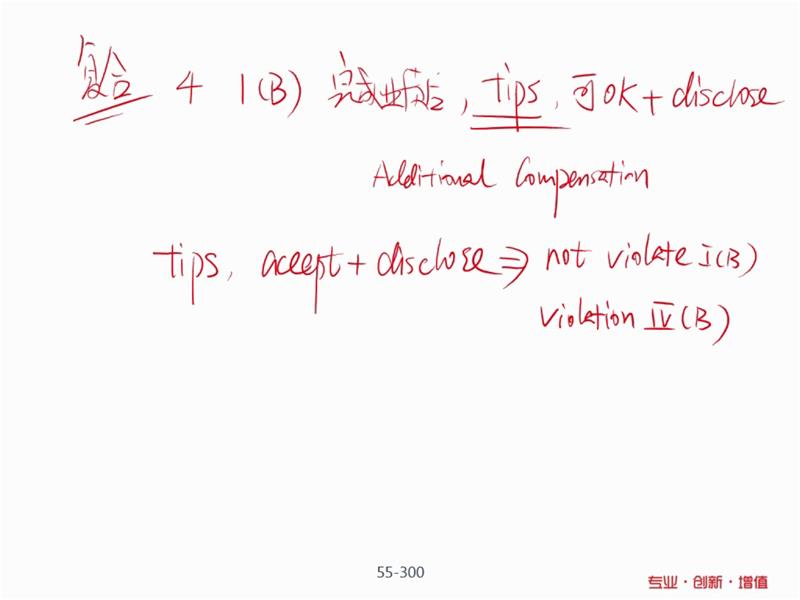 复合 4 I(B) 完成业绩后, tips, 可OK + disclose
Additional Compensation
tips, accept + disclose ⇒ not violate I(B)
violation IV(B)
55-300
专业·创新·增值